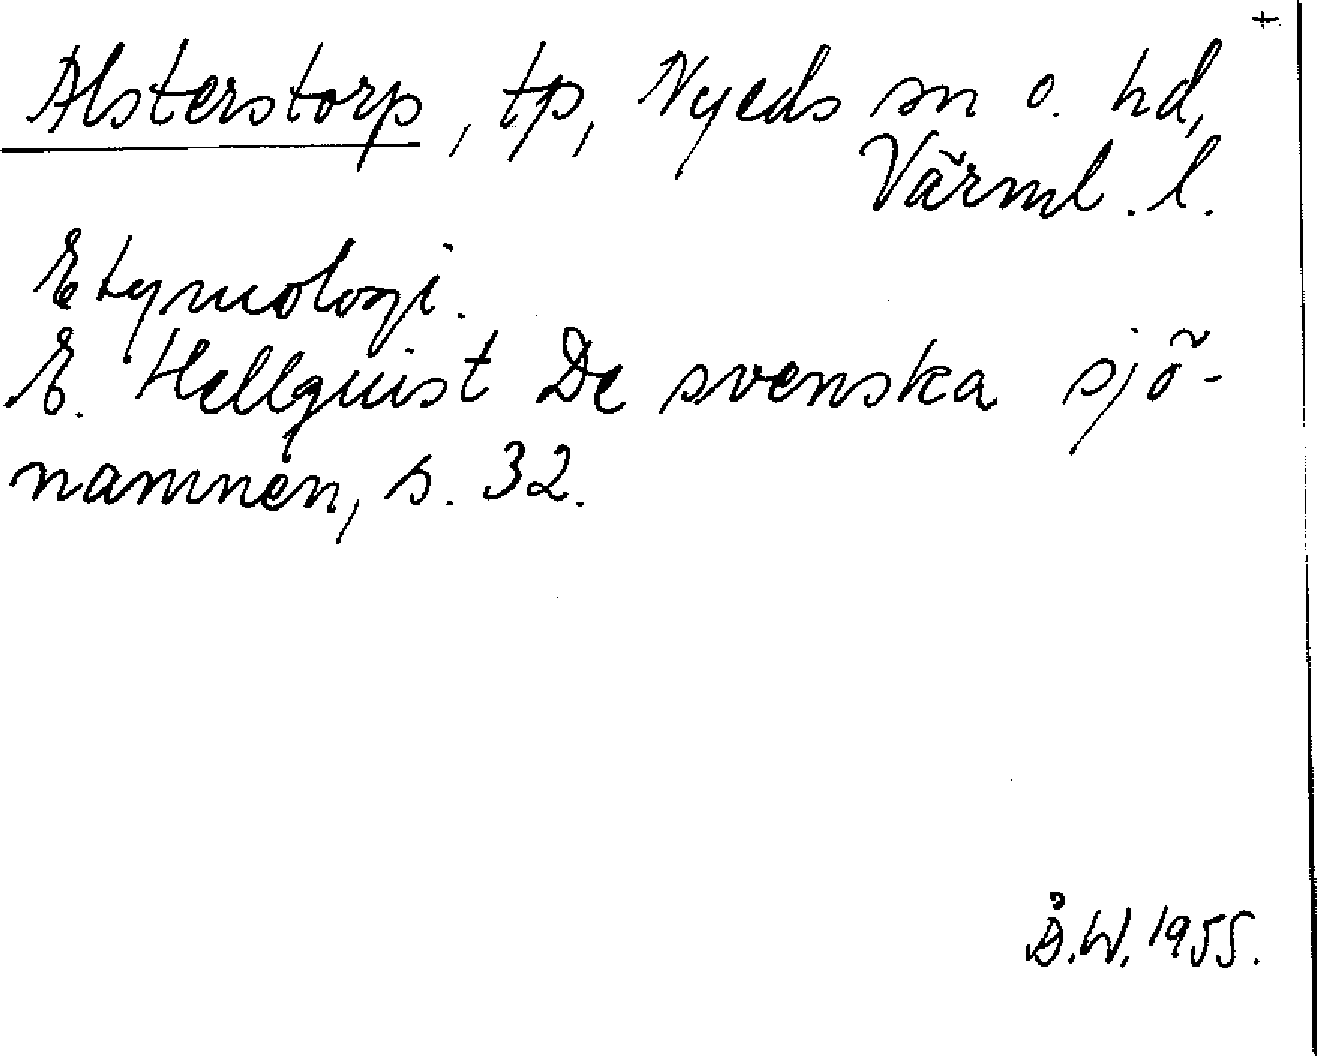 +
Alsterstorp, tp, Nyeds sn o. hd,
Värml. l.
Etymologi.
E. Hellquist De svenska sjö-
namnen, s. 32.
Å.W. 1955.